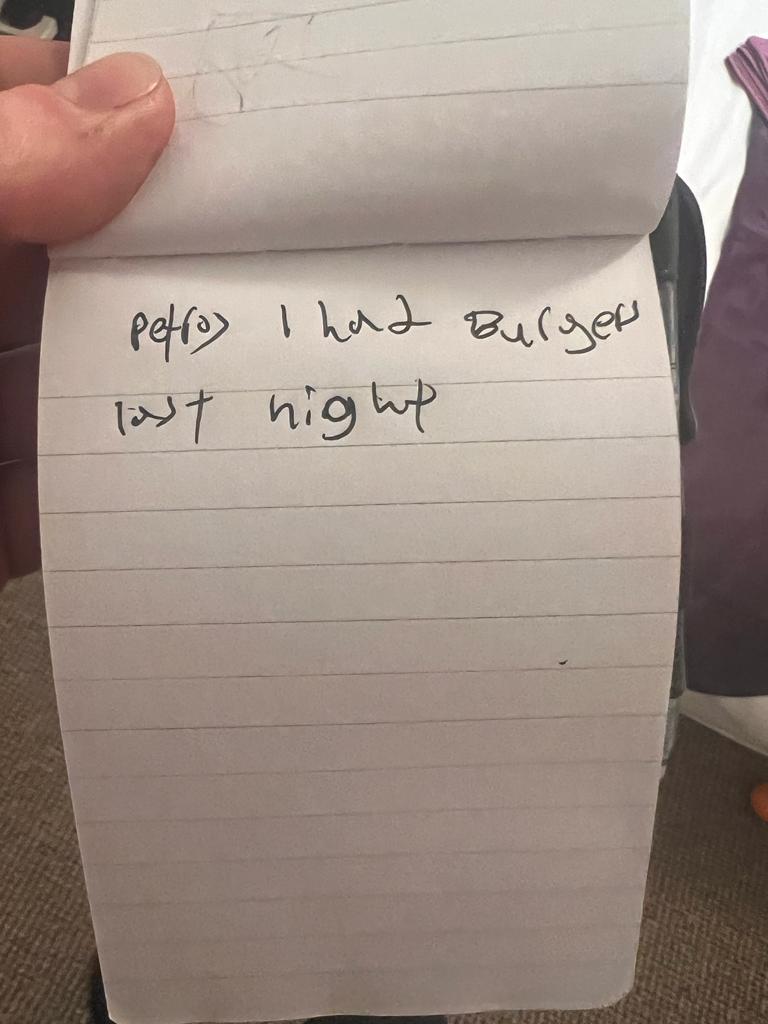 Petros I had Burgers
last night